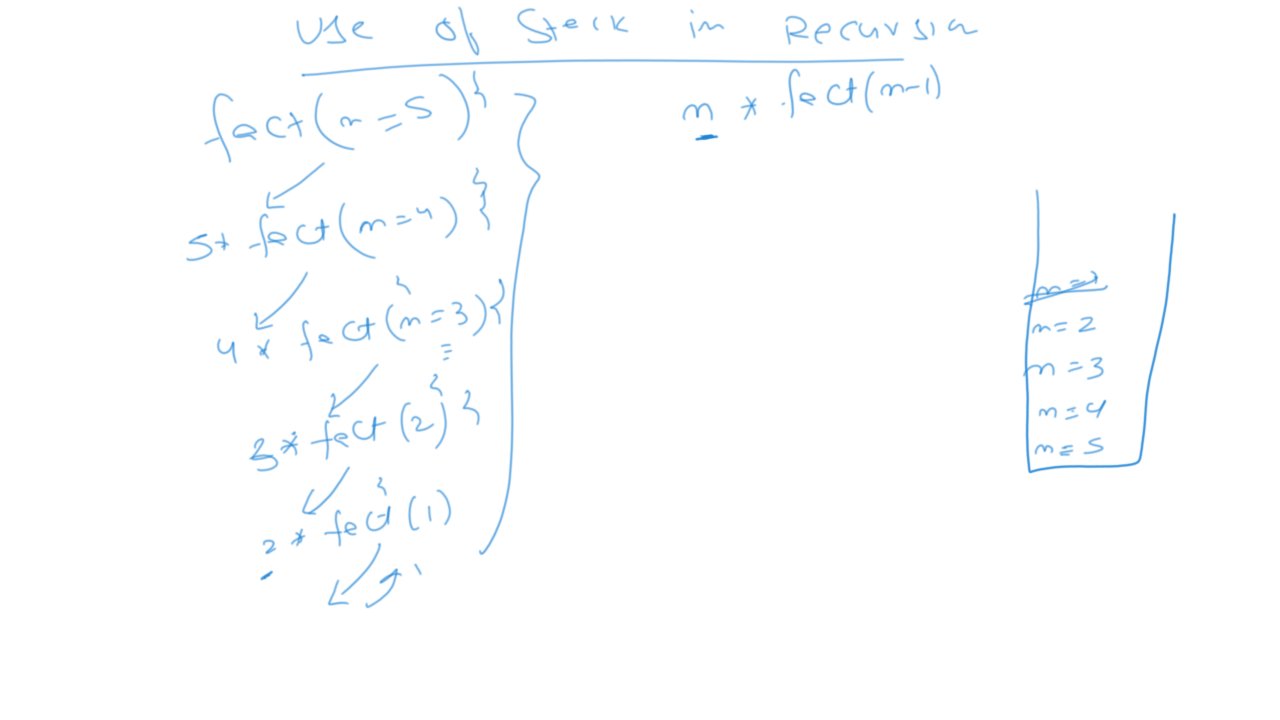 Use of Stack in Recursion
fact(n=5){
n * fact(n-1)
5* fact(n=4) {}
4 * fact(n=3){
3* fact(2) {
2 * fact(1)
1
n=1
n=2
n=3
n=4
n=5